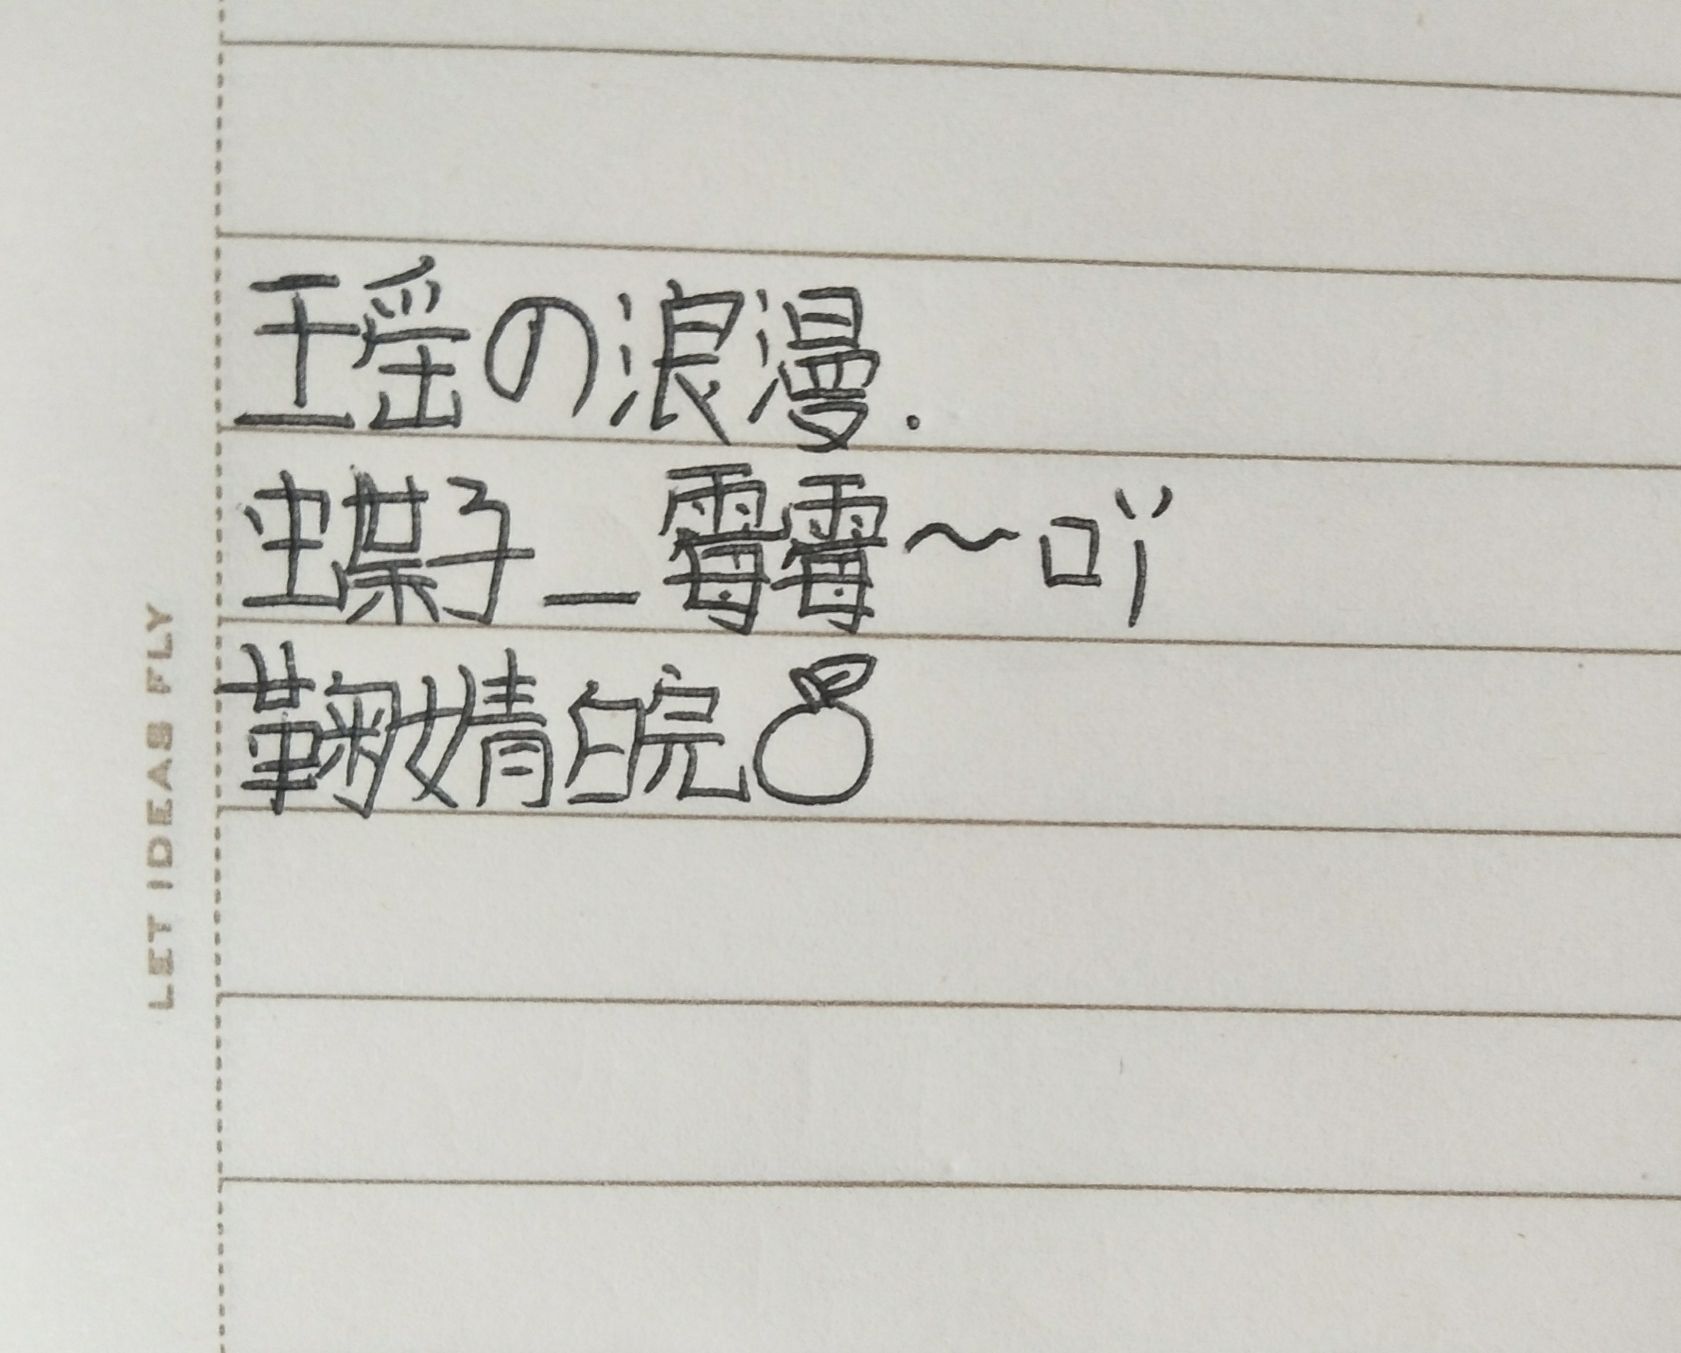 瑶の浪漫.
蝶子_霉霉~吖
鞠婧皖
LET IDEAS FLY